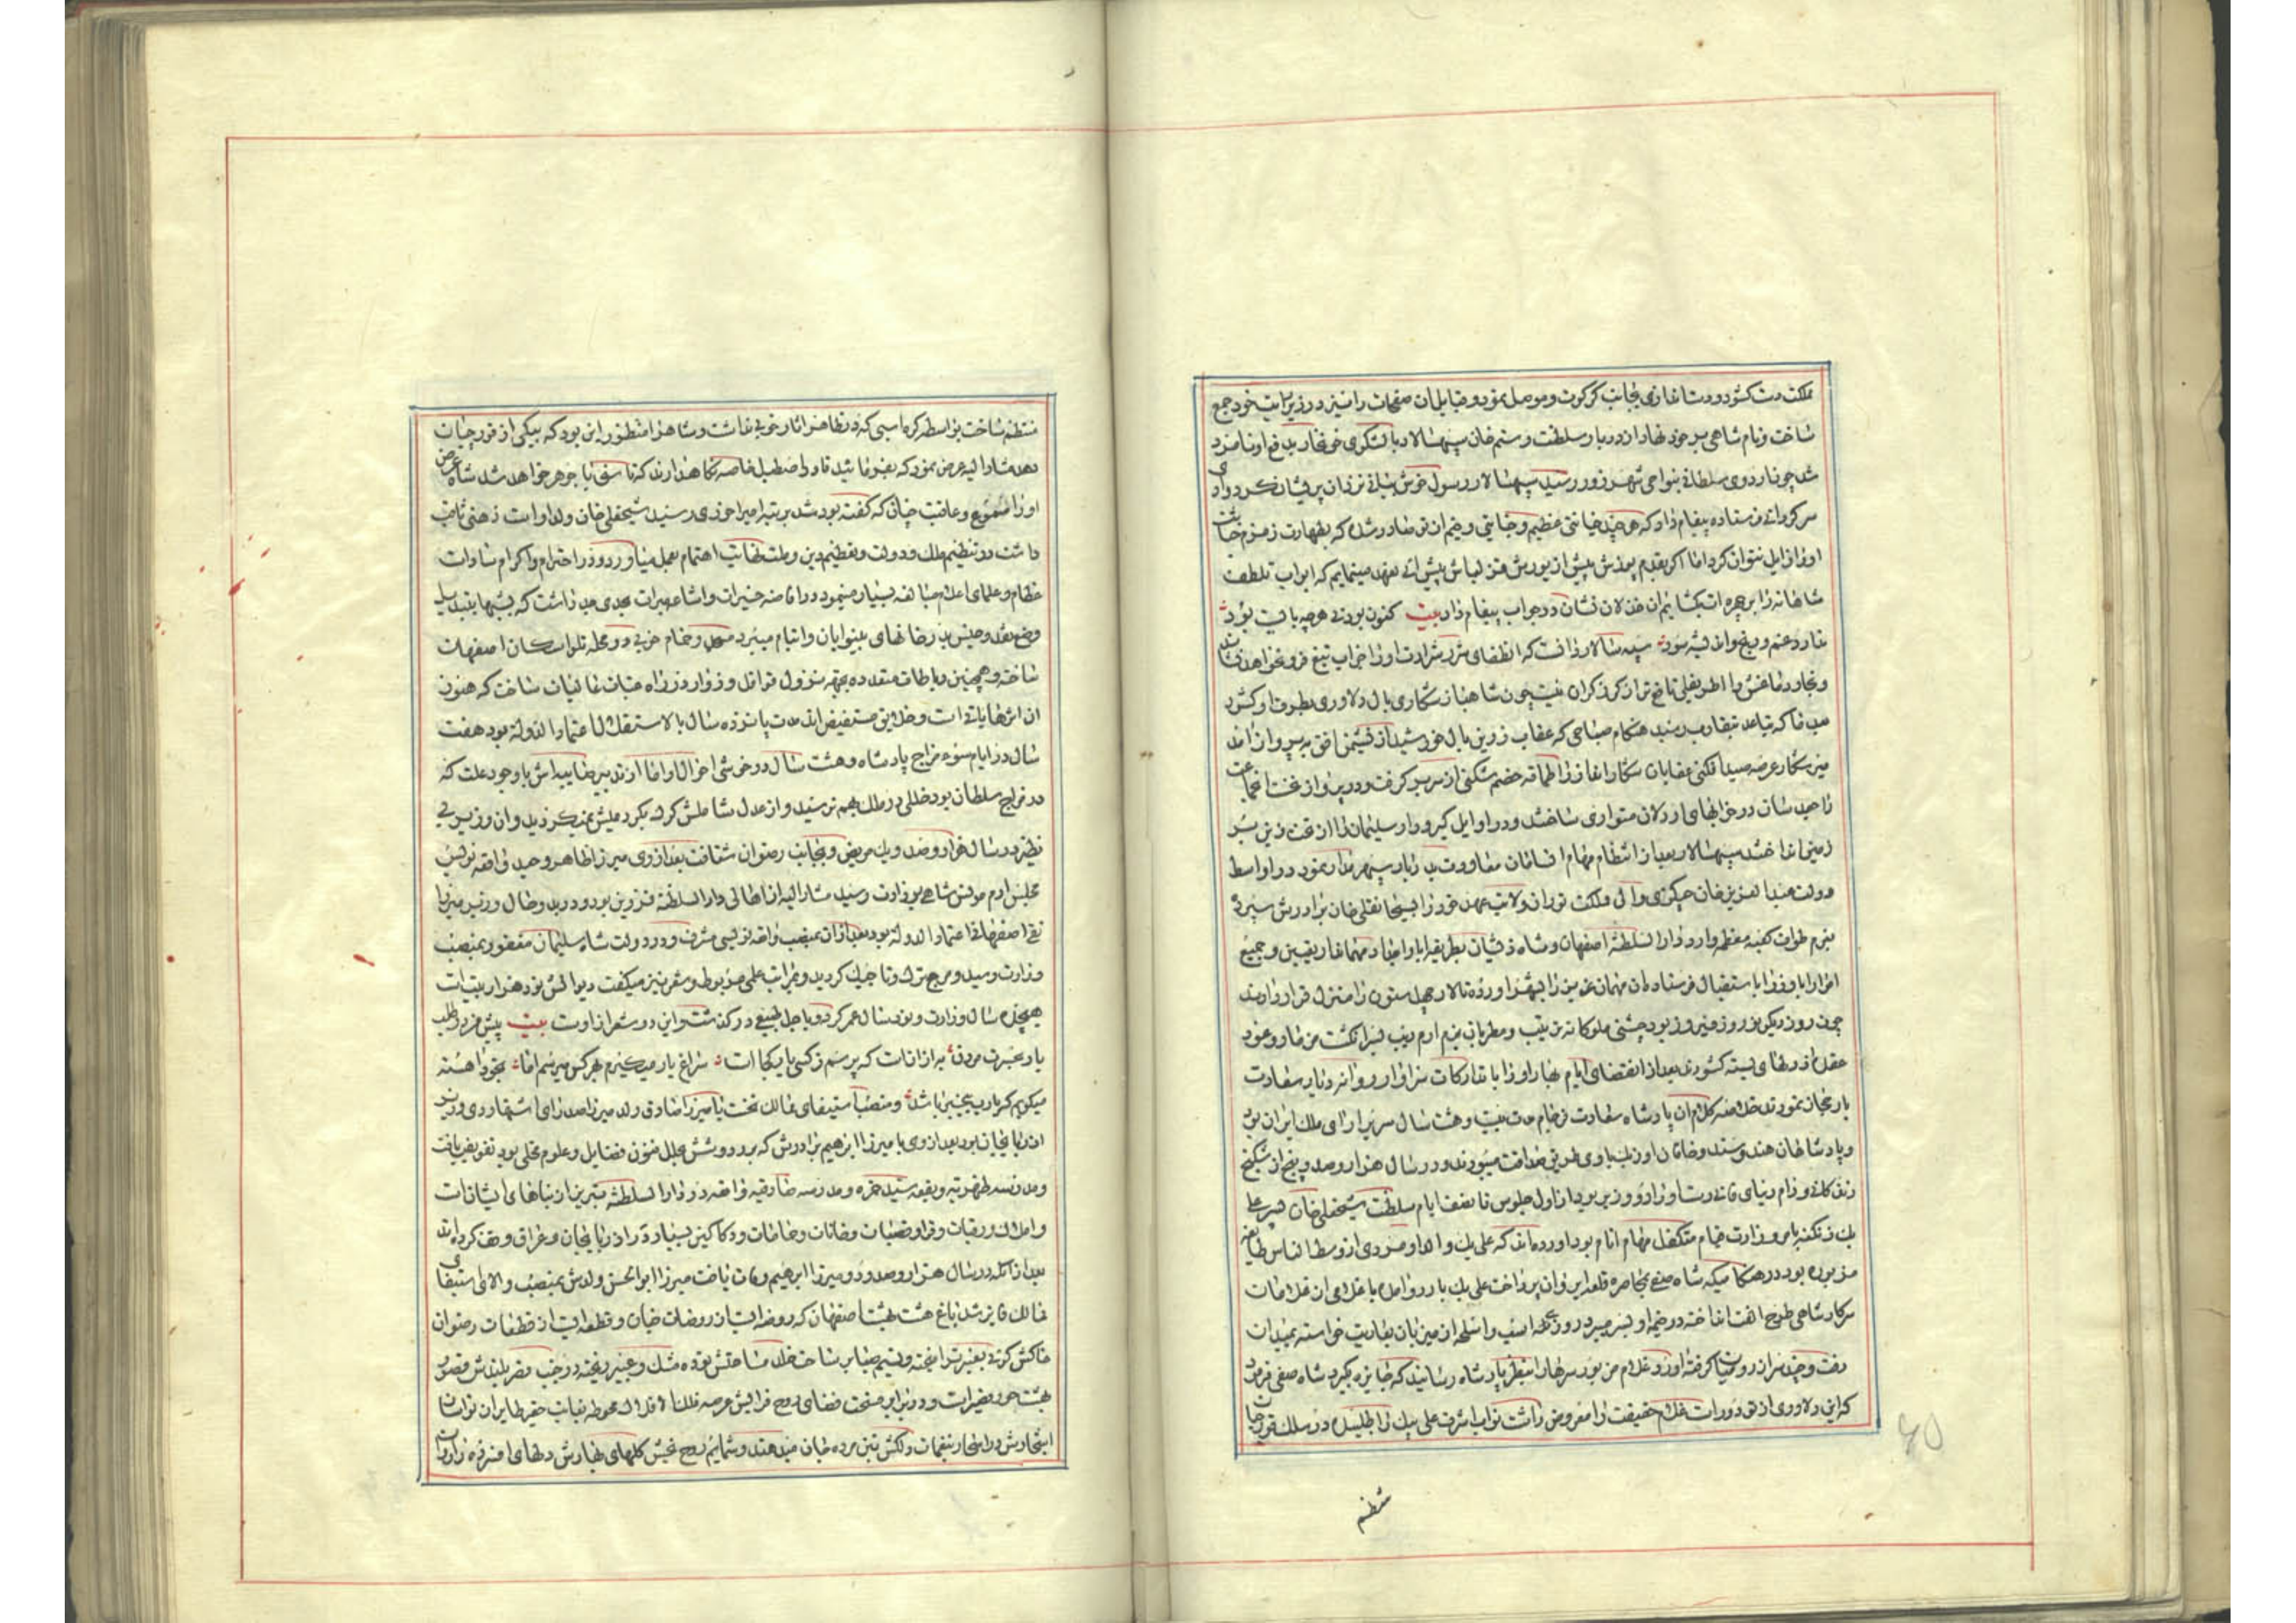 مملکت دست کشور و دست اندازی بجانب کرکوت و موصل نمود و قبایل ان صفحات را نیز در زیر رایت خود جمع
ساخت و نام شاهی بر خود نهاد از دربار سلطنت رستم خان سپهسالار با لشکری خونخوار بدفع او نامزد
شد چون اردوی سلطانی بنواحی شهر زور رسید سپهسالار رسول خوش بیانی نزد ان پریشان کردار
سرکردانی فرستاده پیغام داد که هر چند خیانتی عظیم و جنایتی وخیم از تو صادر شده که بطهارت زمزم خباثت
او زایل نتوان کرد اما اگر بقدم پوزش پیش از یورش قزلباش پیش ائی تعهد مینمایم که ابواب تلطف
شاهانه را بر چهره ات بکشایم ان خذلان نشان در جواب پیغام داد بیت کنون بودنی هر چه بایست بود
ندارد غم و رنج و اندیشه سود سپه سالار دانست که انطفای شرر شرارت او را جز اب تیغ فرو نخواهد نشاند
و بخار دماغش را اطریفلی نافع تر از گرز گران نیست چون شاهباز شکاری بال دلاوری بطرف او کشود
مسافت که تباعد بتقارب رسید هنگام صباحی که عقاب زرین بال خورشید از نشیمن افق به پرواز امد
میر شکار عرصه صید افکنی عقابان شکار انداز را طماقه خصم شکنی از سر بر گرفت و در پرواز
زاحید سان در خرابهای اردلان متواری ساختند و در اوایل گیرودار سلیمان را از تخت زین بسر
زمین انداختند سپهسالار بعد از انتظام مهام انسامان معاودت بدربار سپهر مدار نمود در اواسط
دولت عبد العزیز خان چنگیزی والی مملکت توران ولایت عهد خود را بسبحانقلی خان برادرش سپرد
بعزم طواف کعبه معظمه وارد دار السلطنه اصفهان و شاه ذیشان بطریقه ابا و اجداد مهماندار یقین و جمیع
امرا را با وزرا باستقبال فرستاد ان مهمان عزیز را بشهر اورده تالار چهل ستون را منزل قرار دادند
چون روز دیگر نوروز فیروز بود جشنی ملوکانه ترتیب و مطربان بزم ارم زیب بسر انگشت مضمار و عود
عقده از دلهای بسته کشودند بعد از انقضای ایام بهار او را با تدارکات سزاوار روانه دیار سعادت
یار حجاز نمودند خلاصه کلام ان پادشاه سعادت فرجام مدت بیست و هشت سال سریر ارای ملک ایران بود
و پادشاهان هند و سند و خاقان اوزبک باوی طریق صداقت میپیمودند و در سال هزار و صد و پنج از شکنج
زندگانی و دام دنیای فانی رست او را دو وزیر بود از اول جلوس تا نصف ایام سلطنت شیخعلی خان پسر علی
بیک زنکنه بامر وزارت قیام متکفل مهام انام بود اورده اند که علی بیک والد او مردی از وسط الناس طایفه
مزبوره بود در هنگامیکه شاه صفی بمحاصره قلعه ایروان پرداخت علی بیک باردو امده با غلامی از غلامان
سرکار شاهی طرح الفت انداخته در خیمه او بسر میبرد روزی اسب و اسلحه از میزبان بعاریت خواسته بمیدان
رفت و چند سر از رومیان گرفته اورد غلام مزبور سرها را بنظر پادشاه رسانید که جایزه بگیرد شاه صفی فرمود
که این دلاوری از تو دور است غلام حقیقت را معروض داشت نواب اشرف علی بیک را طلبیده در سلک قورچیان
منتظم
۶۵
منتظم ساخت بواسطه کره اسبی که در نظاهر اثار خوبی نداشت و شاه را منظور این بود که بیکی از قورچیان
دهد مشار الیه عرض نمود که بفرمائید تا در اصطبل خاصه نگاه دارند که اسبی با جوهر خواهد شد شاه عرض
او را مسموع و عاقبت چنان که گفته بود شد برتبه امیراخوری رسید شیخعلی خان ولد او است ذهنی ثاقب
داشت در تنظیم ملک و دولت و تعظیم دین و ملت نهایت اهتمام بعمل میاورد و در احترام و اکرام سادات
عظام و علمای اعلام مبالغه بسیار مینمود در افاضه خیرات و اشاعه مبرات بجدی مید داشت که شبها بتبدیل
وضع نقد و جنس بدرخانهای بینوایان و ایتام میبرد مسجد و حمام خوبی در محله تلواسکان اصفهان
ساخته و همچنین رباطات متعدده بجهة نزول قوافل و زوار در راه عتبات عالیات ساخت که هنوز
ان اثرها باقی است و خلایق مستفیض اند مدت پانزده سال بالاستقلال اعتماد الدوله بود هفت
سال در ایام سوء مزاج پادشاه و هشت سال در خوشی احوال او اما از تدبیر صایبه اش با وجود علت که
در مزاج سلطان بود خللی در ملک بهم نرسید و از عدل شاملش گرگ بگرد میش نمیگردید و ان وزیر بی
نظیر در سال هزار و صد و یک مریض و بجانب رضوان شتافت بعد از وی میرزا طاهر وحید واقعه نویس
مجلس ارم مونس شاهی بوزارت رسید مشار الیه از اهالی دار السلطنه قزوین بود و در بدو حال وزیر میرزا
تقی اصفهانی اعتماد الدوله بود بعد از ان بمنصب واقعه نویسی مشرف و در دولت شاه سلیمان مغفور بمنصب
وزارت رسید و مرجع ترک و تاجیک گردید و بمراتب علمی مربوط و شعر نیز میگفت دیوانش نود هزار بیت است
هیجده سال وزارت و نود سال عمر کرد و باجل طبیعی در گذشت و این دو شعر از اوست بیت پیش مردم طلب
یار بغیرت مردن به از انست که پرسم ز کسی یار کجا است سراغ یار میگیرم بهر کس میرسم اما بخود اهسته
میگویم که یارب بیخبر باشد و منصب استیفای ممالک نخست با میرزا صادق ولد میرزا صدر ای اشتهاردی وزیر
اذربایجان بود بعد از وی با میرزا ابرهیم برادرش که بر دو دوشش بحلل فنون فضایل و علوم محلی بود تفویض یافت
و مدرسه ظهیریه و بقعه سید حمزه و مدرسه صادقیه واقعه در دار السلطنه تبریز از بناهای ایشان است
و املاک و رقبات و قرا و قصبات و خانات و حمامات و دکاکین بسیار در اذربایجان و عراق وقف کرده اند
بعد از انکه در سال هزار و صد و دو میرزا ابرهیم وفات یافت میرزا ابو الحسن ولدش بمنصب والای استیفای
ممالک فایز شد باغ هشت بهشت اصفهان که روضه ایست از روضات جنان و قطعه ایست از قطعات رضوان
خاکش گوئی بعنبر تر امیخته و نسیم صبا بر ساحت خلد مساحتش توده مشک و عبیر ریخته در جنب قصر بلندش قصور
بهشت در قصر است و در برابر صفحت فضای روح فزایش عرصه فلک الافلاک محوطه بغایت حقیر طایران نواسان
اشجارش در اسحار بنغمات دلکش بتن مرده جان میدهند و شمایم روح بخش گلهای بهارش دلهای افسرده را روان